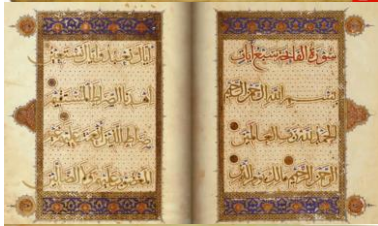 سورة الفاتحة سبع آيات
بسم الله الرحمن الرحيم
الحمد لله رب العالمين
الرحمن الرحيم مالك يوم الدين
إياك نعبد وإياك نستعين
اهدنا الصراط المستقيم
صراط الذين أنعمت عليهم غير
المغضوب عليهم ولا الضالين